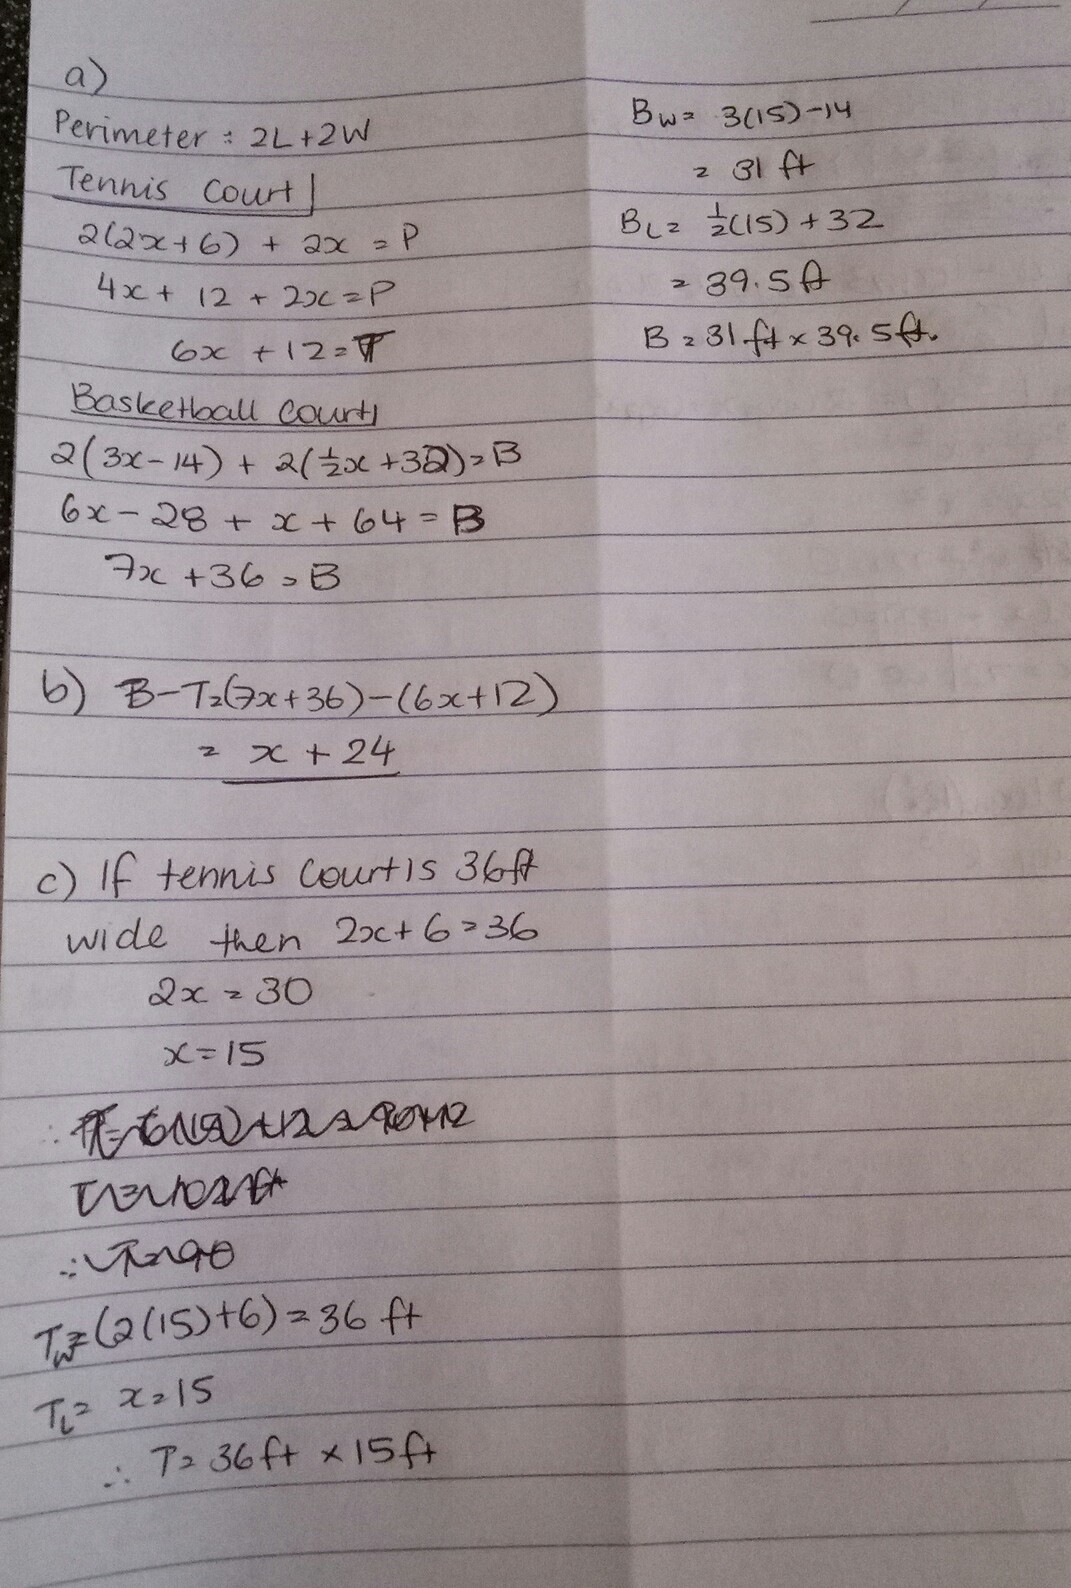 a)
Perimeter : 2L+2W
Tennis Court
2(2x+6) + 2x = P
4x + 12 + 2x = P
6x + 12 = T
Basketball court
2(3x-14) + 2(½x+32) = B
6x - 28 + x + 64 = B
7x + 36 = B
b) B-T=(7x+36)-(6x+12)
= x + 24
c) If tennis court is 36ft
wide then 2x+6=36
2x = 30
x=15
Tw=(2(15)+6)=36 ft
TL= x=15
∴ T= 36ft x 15ft
Bw= 3(15)-14
= 31 ft
BL= ½(15)+32
= 39.5ft
B = 31ft x 39.5ft.